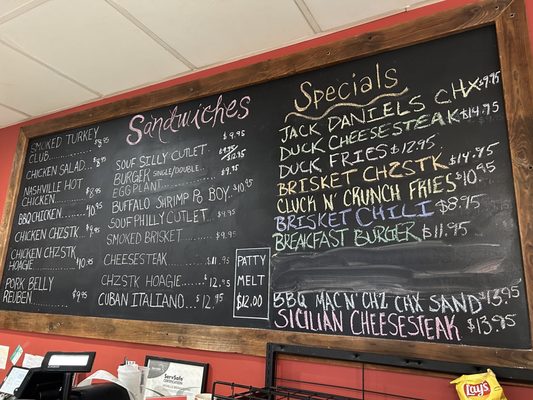 SANDWICHES
SMOKED TURKEY
CLUB
CHICKEN SALAD
NASHVILLE HOT
CHICKEN
BBQ CHICKEN $10.95
CHICKEN CHZSTK
CHICKEN CHZSTK
HOAGIE $10.95
PORK BELLY
REUBEN $9.95
SOUF SILLY CUTLET $9.95
BURGER SINGLE/DOUBLE
EGGPLANT $9.95
BUFFALO SHRIMP PO BOY $10.95
SOUF PHILLY CUTLET $9.95
SMOKED BRISKET $9.95
CHEESESTEAK $11.95
CHZSTK HOAGIE $12.95
CUBAN ITALIANO $12.95
PATTY
MELT
$12.00
SPECIALS
JACK DANIELS CHX $9.95
DUCK CHEESESTEAK $14.95
DUCK FRIES $12.95
BRISKET CHZSTK $14.95
CLUCK N' CRUNCH FRIES $10.95
BRISKET CHILI $8.95
BREAKFAST BURGER $11.95
BBQ MAC N' CHZ CHX SAND $13.95
SICILIAN CHEESESTEAK $13.95
ServSafe
CERTIFICATION
Lay's